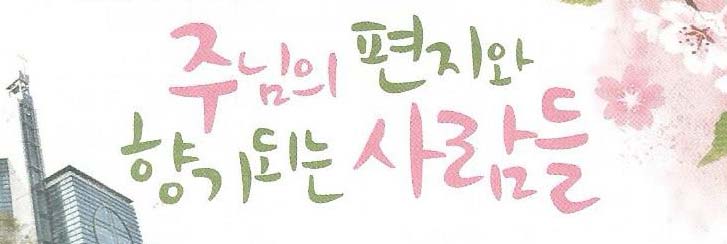 주님의 편지와
향기되는 사람들